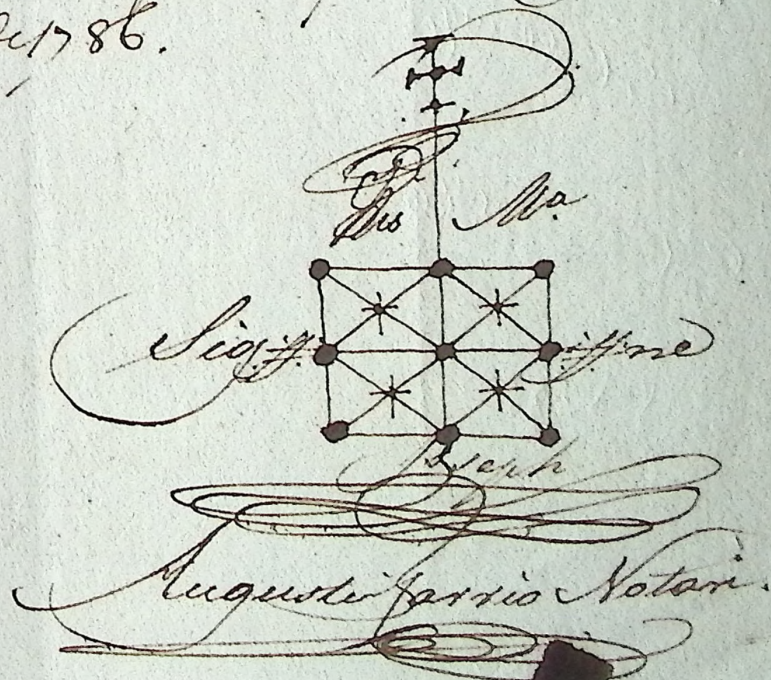 de 1786.
Jhs Ma
Sig ne
Joseph
Augustin Carrio Notari.